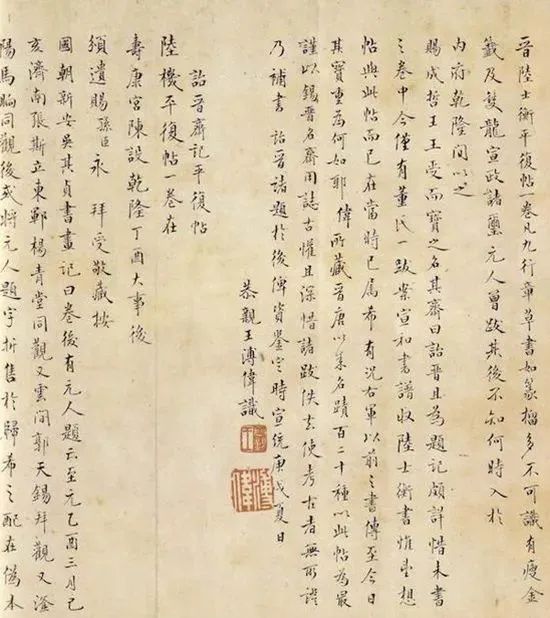 晉陸士衡平復帖一卷凡九行章草書如篆籀多不可識有瘦金
籤及雙龍宣政諸璽元人曾跋其後不知何時入於
內府乾隆間以之
賜成哲王王受而寶之名其齋曰詒晉且為題記頗詳惜未書
之卷中今僅有董氏一跋案宣和書譜收陸士衡書惟望想
帖與此帖而已在當時已属希有況右軍以前之書傳至今日
其寶重為何如耶偉所藏晉唐以來名蹟百二十種以此帖為最
謹以錫晉名齋用誌古懽且深惜諸跋佚去使考古者無所證
乃補書詒晉諸題於後傳資鑒定時宣統庚戌夏日
恭親王溥偉識
溥偉
詒晉齋記平復帖
陸機平復帖一卷在
壽康宮陳設乾隆丁酉大事後
頒遺賜孫臣永 拜受敬藏按
國朝新安吳其貞書畫記曰卷後有元人題云至元乙酉三月己
亥濟南張斯立東鄆楊青堂同觀又雲間郭天錫拜觀又滏
陽馬昫同觀後或將元人題字折售於歸希之配在偽本